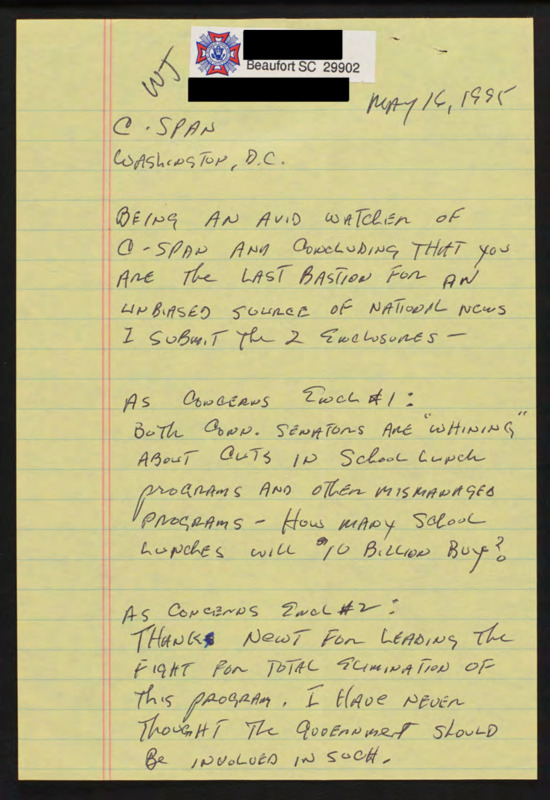 WJ
Beaufort SC 29902
MAY 16, 1995
C-SPAN
WASHINGTON, D.C.
BEING AN AVID WATCHER OF
C-SPAN AND CONCLUDING THAT you
ARE The LAST BASTION FOR AN
UNBIASED SOURCE OF NATIONAL NEWS
I SUBMIT The 2 ENCLOSURES —
AS CONCERNS Encl #1:
Both CONN. SENATORS ARE "WHINING"
ABOUT CUTS IN School Lunch
programs AND other MISMANAGED
PROGRAMS - HOW MANY School
LUNCHES will $10 BILLION Buy?
AS CONCERNS Encl #2:
THANKS NEWT FOR LEADING The
FIGHT FOR TOTAL ELIMINATION OF
This program. I HAVE NEVER
Thought The Government SHOULD
Be INVOLVED IN SUCH.